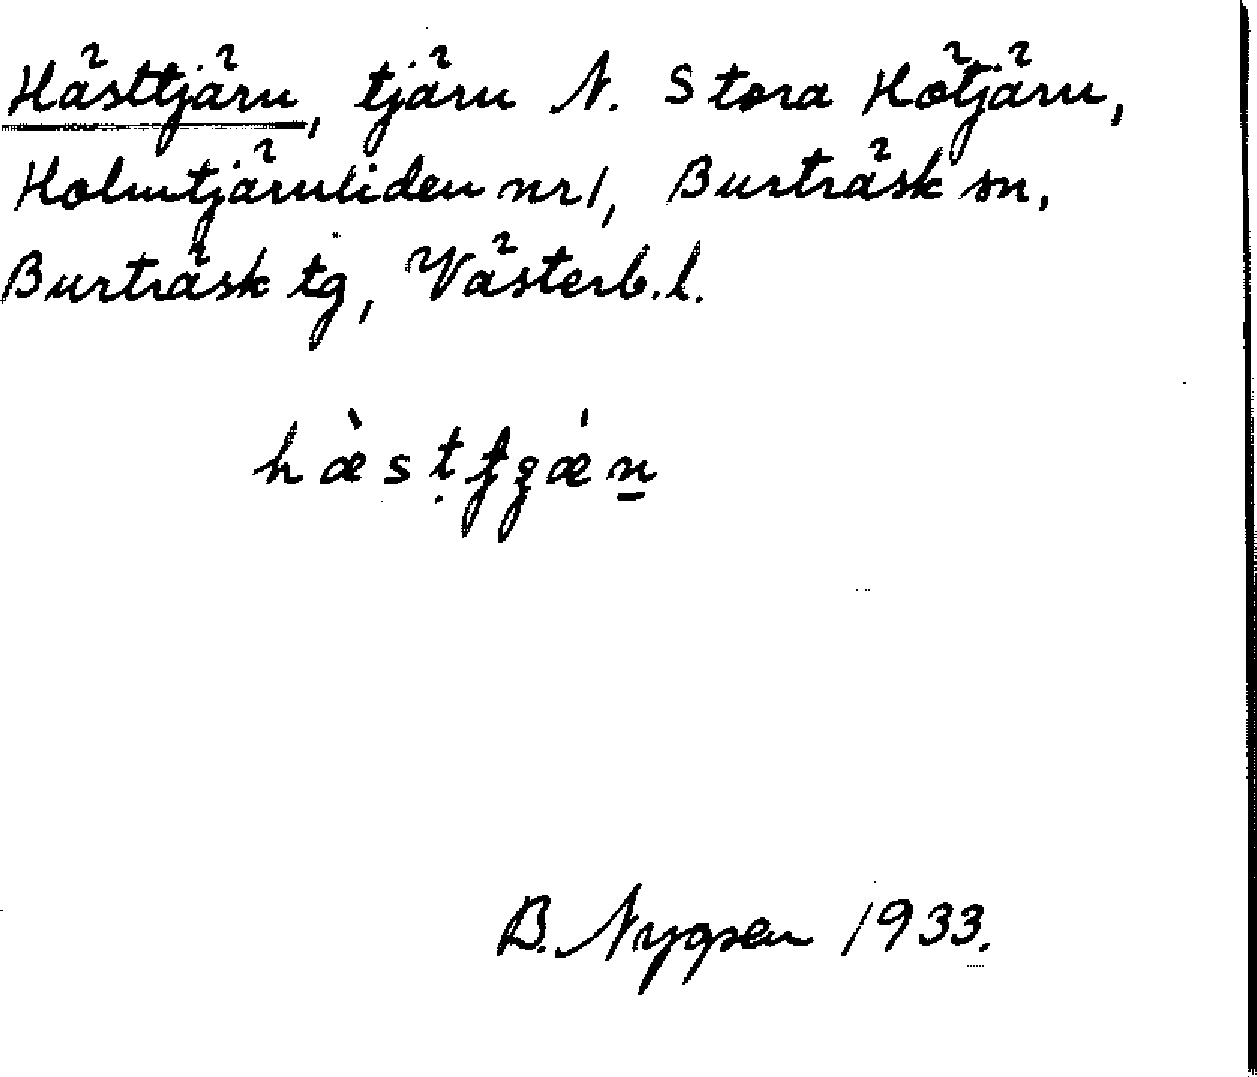 Hästtjärn, tjärn N. Stora Hötjärn,
Holmtjärnliden nr 1, Burträsk sn,
Burträsk tg, Västerb. l.
hæ̀sṭʈʂǽn̲
B. 1933.